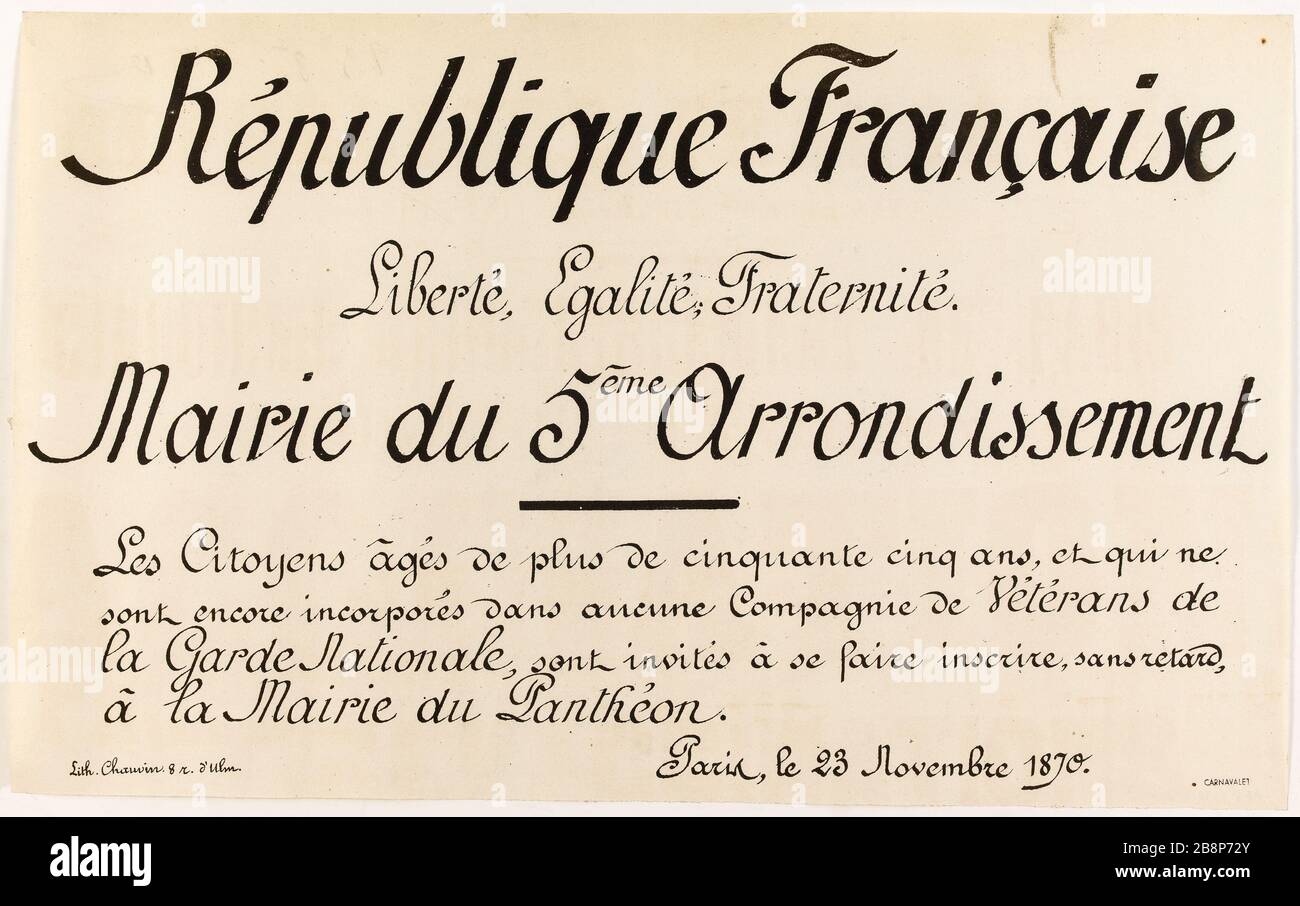 République Française
Liberté, Egalité, Fraternité.
Mairie du 5ème Arrondissement
Les Citoyens âgés de plus de cinquante cinq ans, et qui ne
sont encore incorporés dans aucune Compagnie de Vétérans de
la Garde Nationale, sont invités à se faire inscrire, sans retard,
à la Mairie du Panthéon.
Paris, le 23 Novembre 1870.
Lith. Chauvin. 8 r. d'Ulm.
CARNAVALET
alamy
alamy
Image ID: 2B8P72Y
www.alamy.com